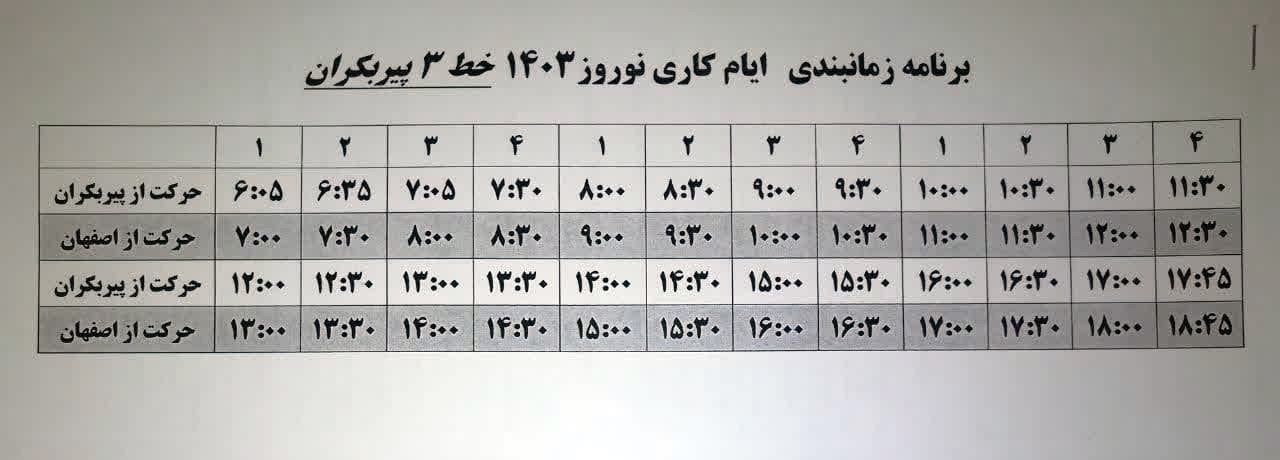 برنامه زمانبندی ایام کاری نوروز ۱۴۰۳ خط ۳ پیربکران
۱ ۲ ۳ ۴ ۱ ۲ ۳ ۴ ۱ ۲ ۳ ۴
حرکت از پیربکران ۶:۰۵ ۶:۳۵ ۷:۰۵ ۷:۳۰ ۸:۰۰ ۸:۳۰ ۹:۰۰ ۹:۳۰ ۱۰:۰۰ ۱۰:۳۰ ۱۱:۰۰ ۱۱:۳۰
حرکت از اصفهان ۷:۰۰ ۷:۳۰ ۸:۰۰ ۸:۳۰ ۹:۰۰ ۹:۳۰ ۱۰:۰۰ ۱۰:۳۰ ۱۱:۰۰ ۱۱:۳۰ ۱۲:۰۰ ۱۲:۳۰
حرکت از پیربکران ۱۲:۰۰ ۱۲:۳۰ ۱۳:۰۰ ۱۳:۳۰ ۱۴:۰۰ ۱۴:۳۰ ۱۵:۰۰ ۱۵:۳۰ ۱۶:۰۰ ۱۶:۳۰ ۱۷:۰۰ ۱۷:۴۵
حرکت از اصفهان ۱۳:۰۰ ۱۳:۳۰ ۱۴:۰۰ ۱۴:۳۰ ۱۵:۰۰ ۱۵:۳۰ ۱۶:۰۰ ۱۶:۳۰ ۱۷:۰۰ ۱۷:۳۰ ۱۸:۰۰ ۱۸:۴۵